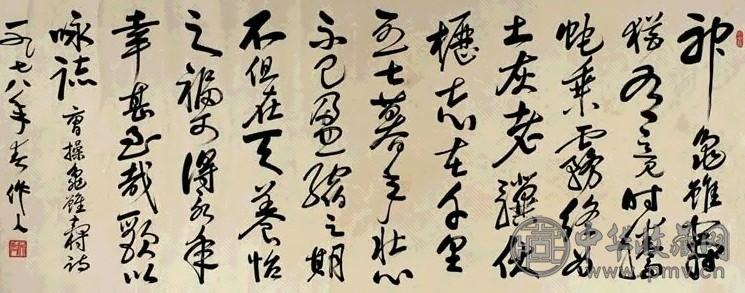 神龜雖壽
猶有竟時騰
蛇乘霧終为
土灰老驥伏
櫪志在千里
烈士暮年壮心
不已盈縮之期
不但在天養怡
之福可得永年
幸甚至哉歌以
咏誌 曹操龜雖壽詩
一九七八年春 作人
中华收藏网
www.pmv.cn